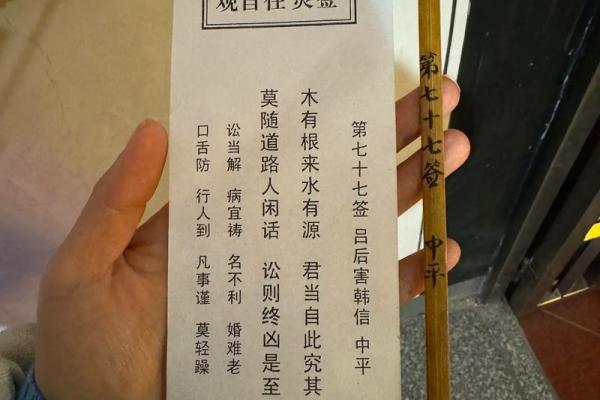 观自在灵签
第七十七签 吕后害韩信 中平
木有根来水有源 君当自此究其
莫随道路人闲话 讼则终凶是至
讼当解 病宜祷 名不利 婚难老
口舌防 行人到 凡事谨 莫轻躁
第七十七签 中平